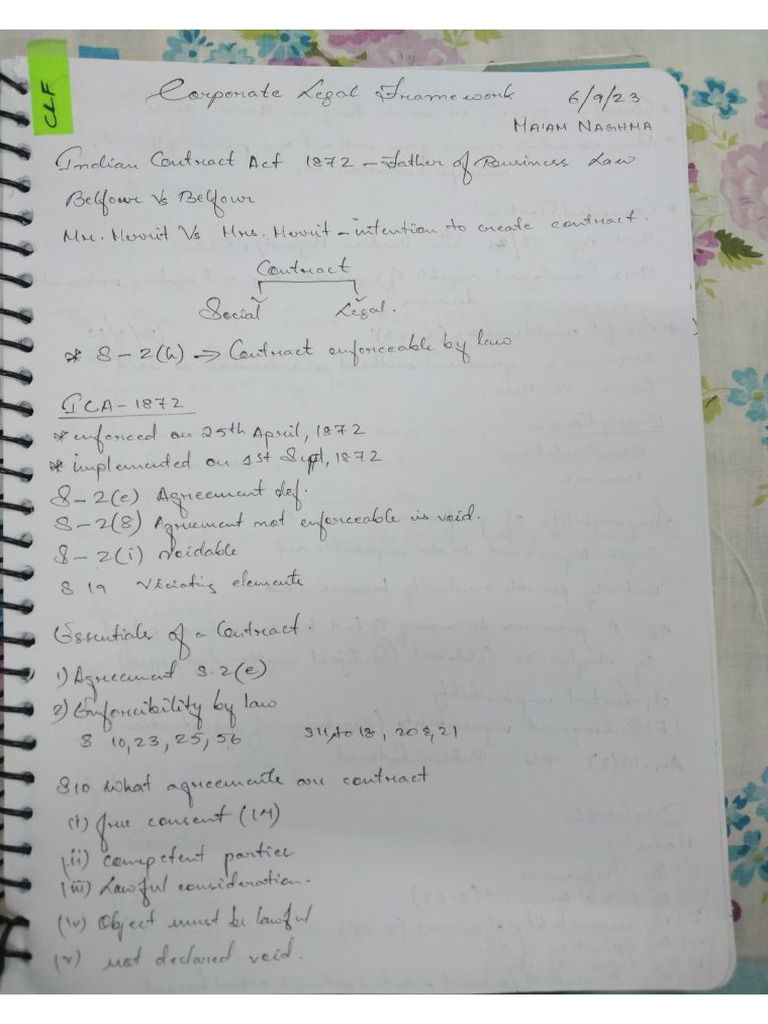 CLF
Corporate Legal Framework 6/9/23
MA'AM NAGHMA
Indian Contract Act 1872 - Father of Business Law
Belfour Vs Belfour
Mr. Merrit Vs Mrs. Merrit - intention to create contract.
Contract
Social Legal.
* S-2(h) → Contract enforceable by law
ICA-1872
* enforced on 25th April, 1872
* implemented on 1st Sept, 1872
S-2(e) Agreement def.
S-2(g) Agreement not enforceable is void.
S-2(i) voidable
S 19 Vitiating elements
Essentials of a Contract.
1) Agreement S.2(e)
2) Enforcibility by law
S 10, 23, 25, 56 S11, to 18, 20 &, 21
S10 What agreements are contract
(i) free consent (14)
(ii) competent parties
(iii) Lawful consideration.
(iv) Object must be lawful
(v) not declared void.